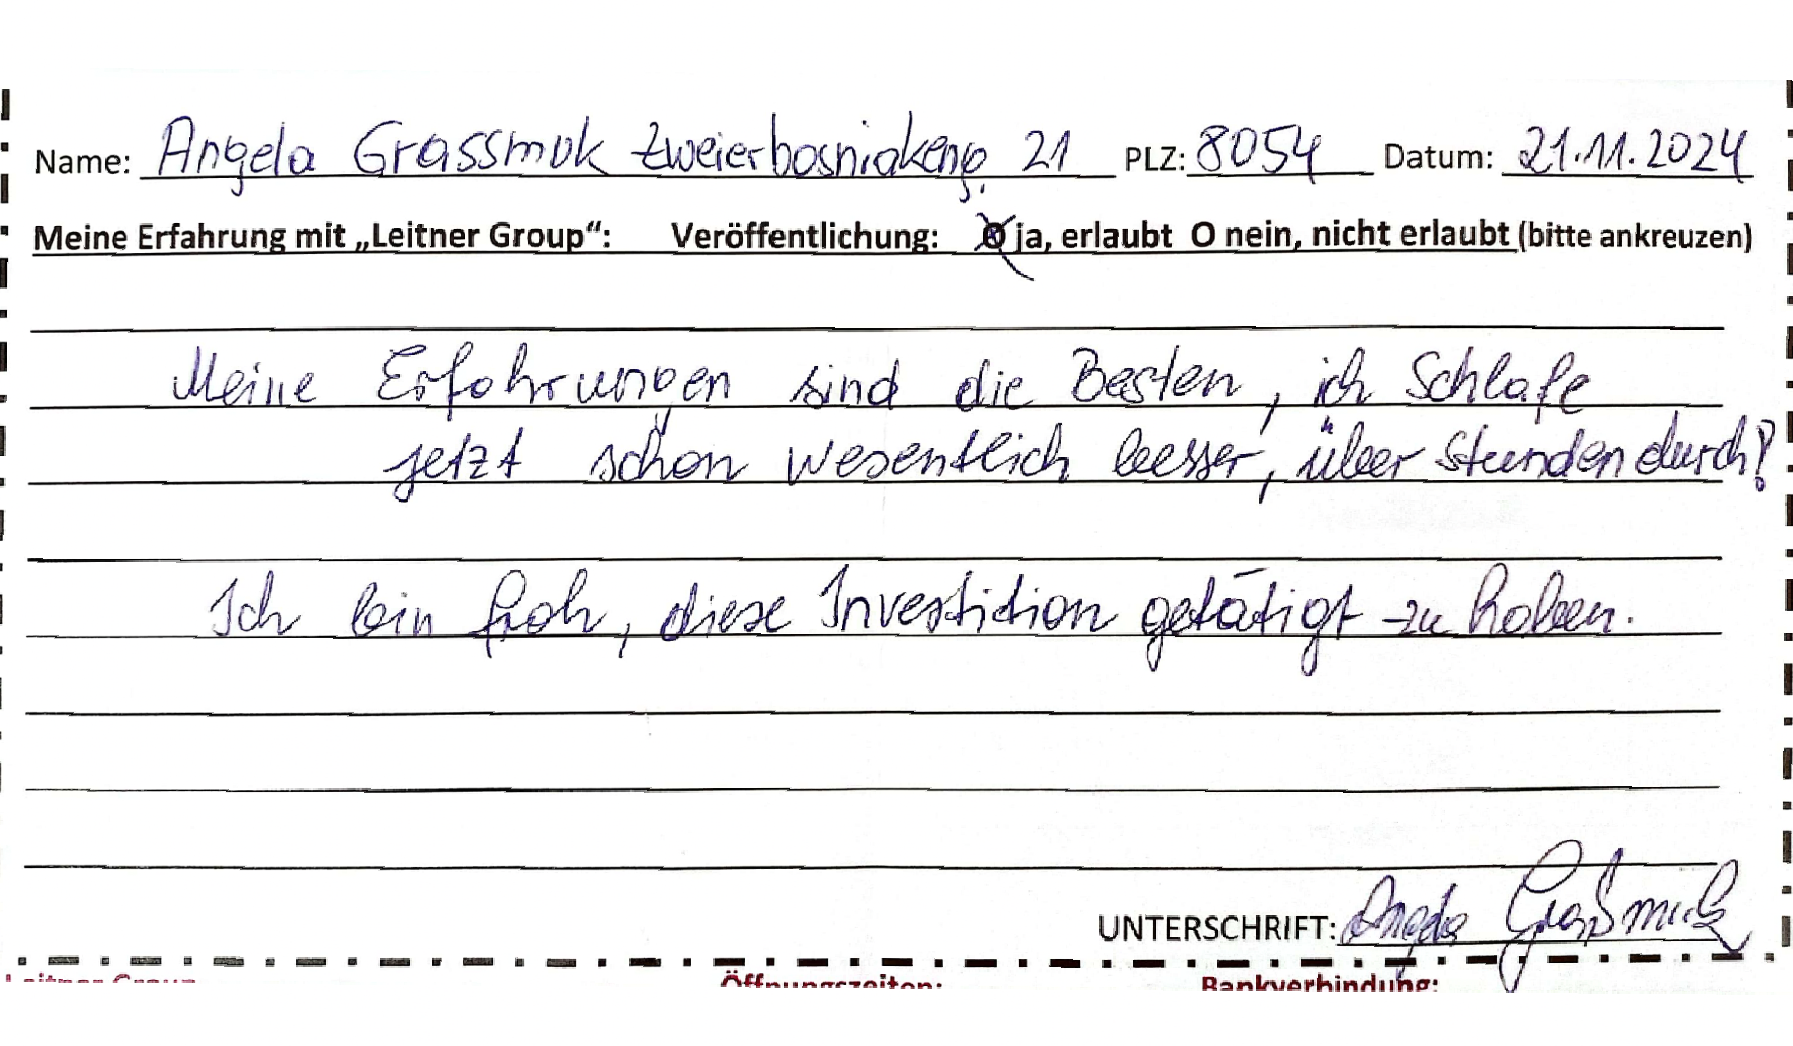 Name: Angela Grassmuk Zweierbosniakeng. 21 PLZ: 8054 Datum: 21.11.2024
Meine Erfahrung mit „Leitner Group“: Veröffentlichung: O ja, erlaubt O nein, nicht erlaubt (bitte ankreuzen)
Meine Erfahrungen sind die Besten, ich Schlafe
jetzt schon wesentlich besser, über Stunden durch!
Ich bin froh, diese Investition getätigt zu haben.
UNTERSCHRIFT: Angela Graßmuck
Leitner Group Öffnungszeiten: Bankverbindung: